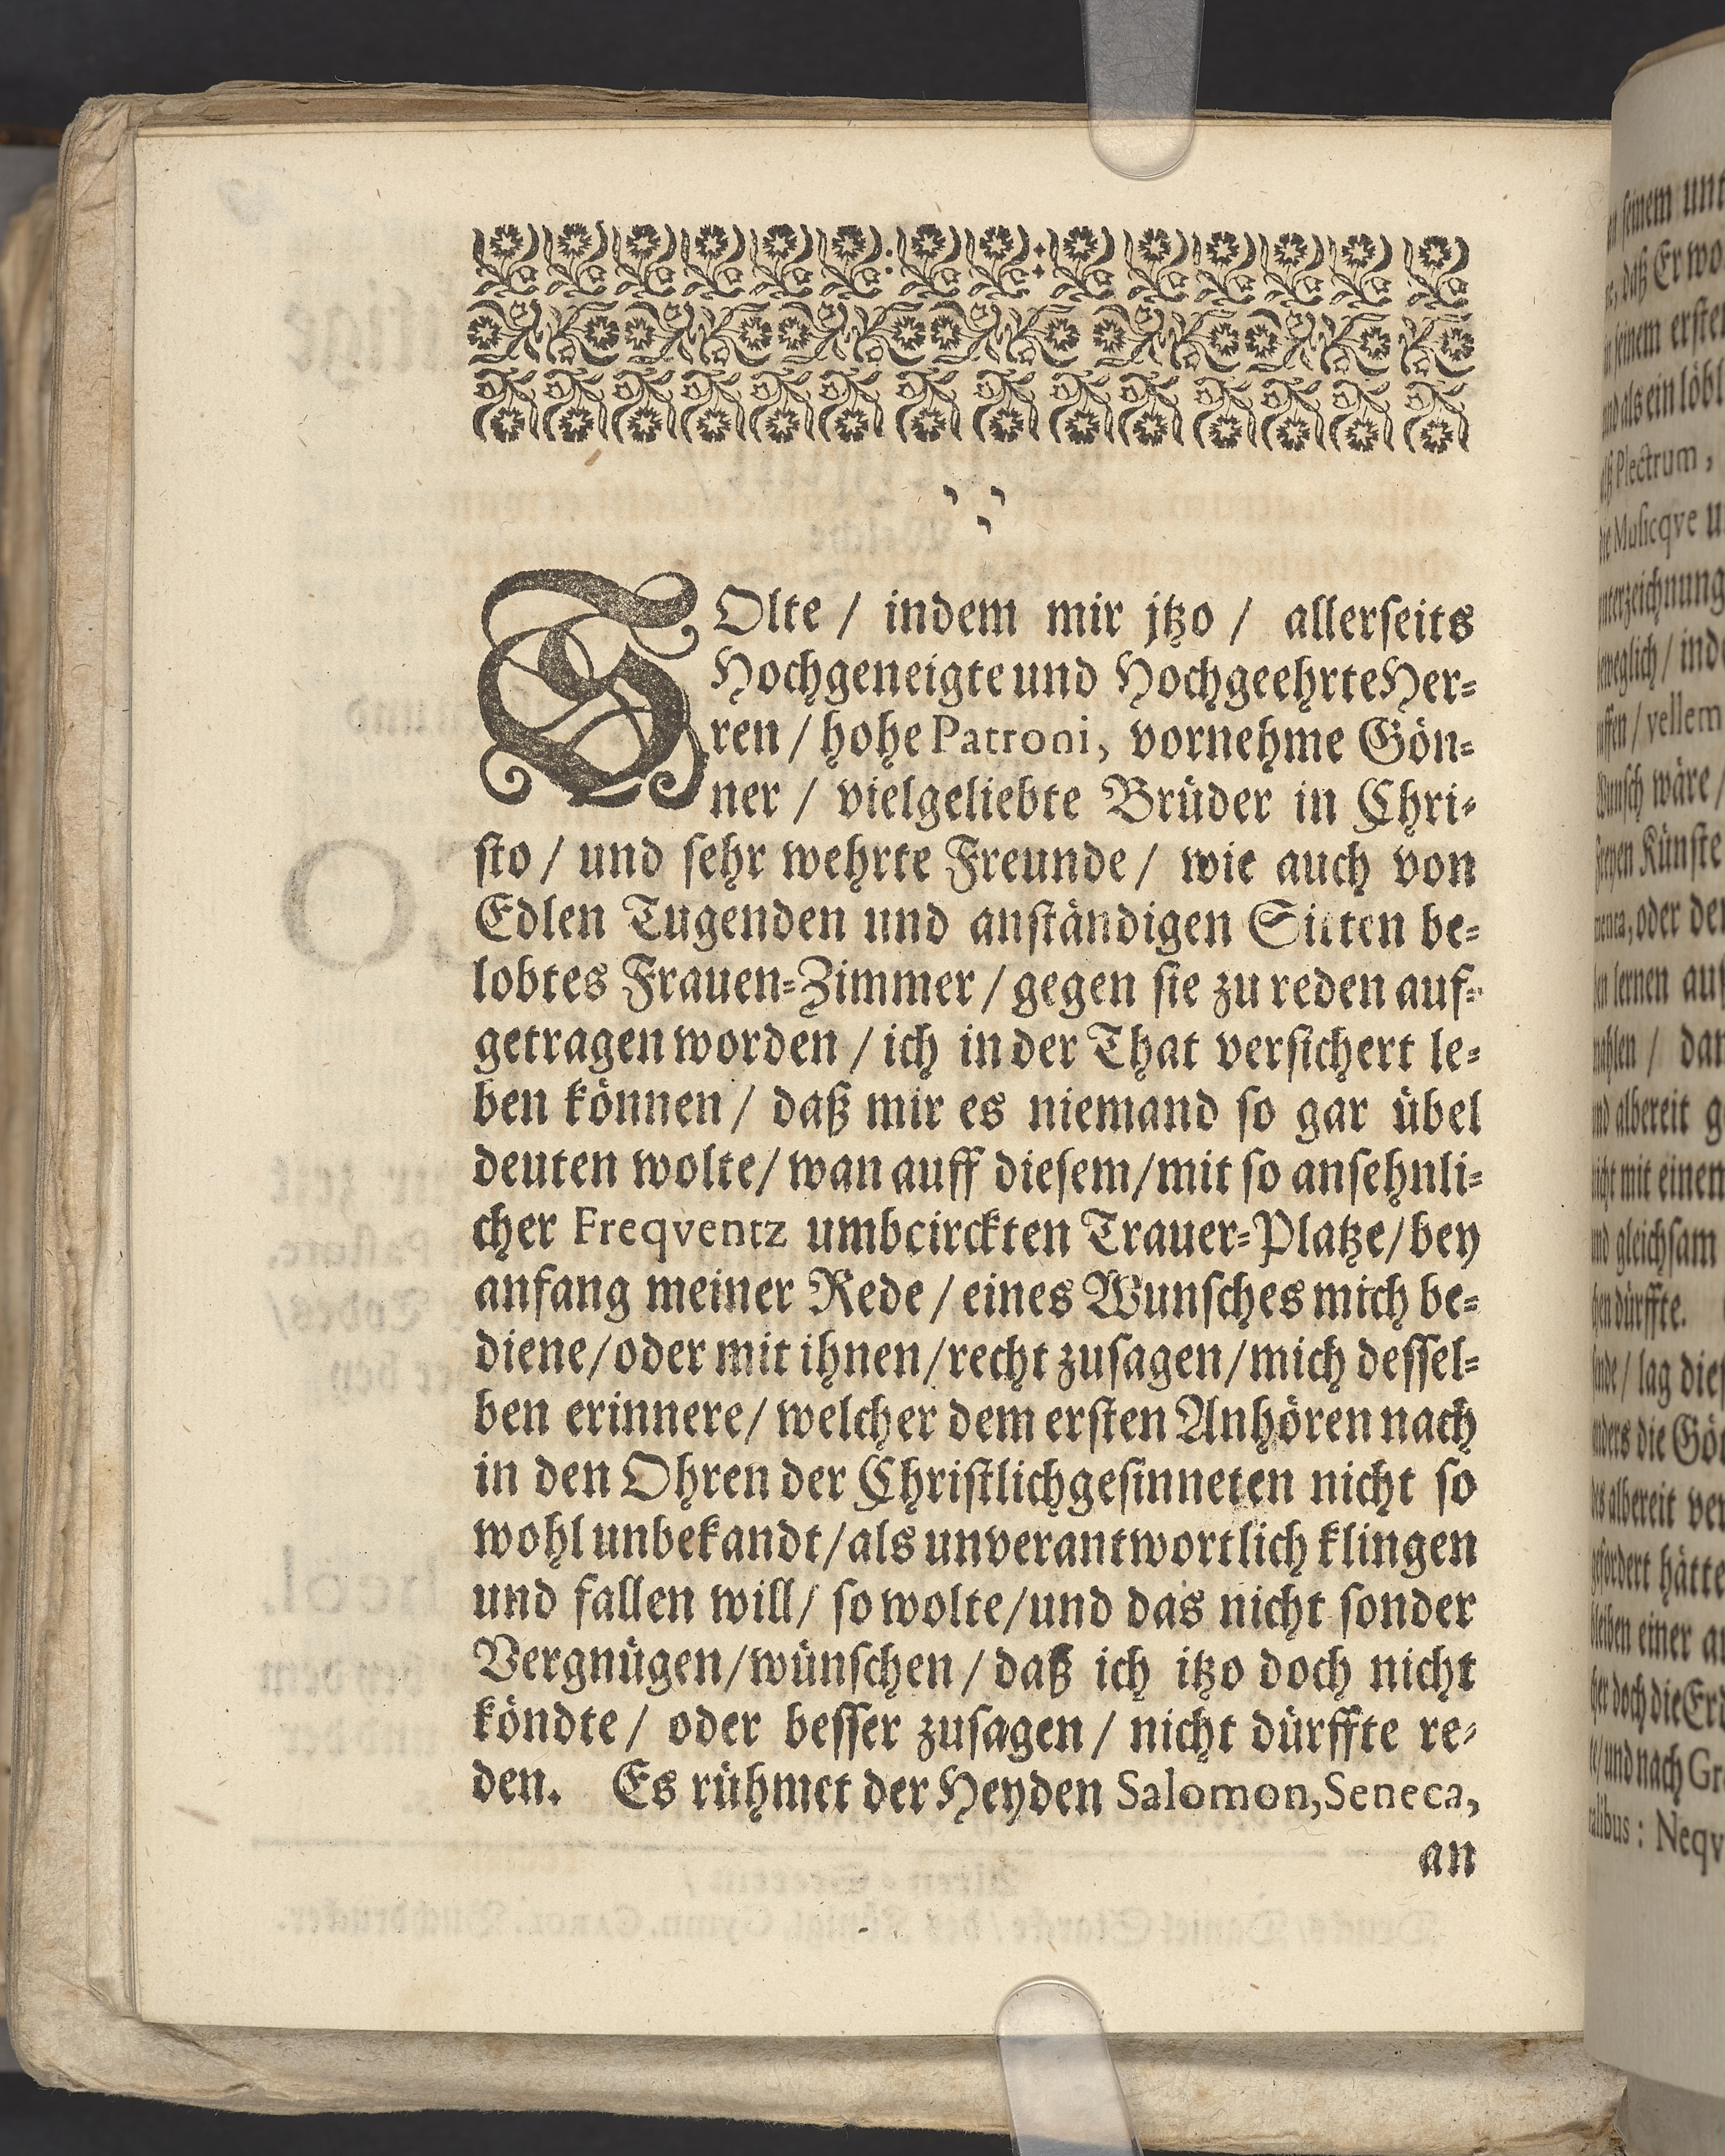 י י
י
SOlte / indem mir jtzo / allerſeits
Hochgeneigte und Hochgeehrte Her⸗
ren / hohe Patroni, vornehme Gön⸗
ner / vielgeliebte Brüder in Chri⸗
ſto / und ſehr wehrte Freunde / wie auch von
Edlen Tugenden und anſtändigen Sitten be⸗
lobtes Frauen⸗Zimmer / gegen ſie zu reden auf⸗
getragen worden / ich in der That verſichert le⸗
ben können / daß mir es niemand ſo gar übel
deuten wolte / wan auff dieſem / mit ſo anſehnli⸗
cher Freqventz umbcirckten Trauer⸗Platze / bey
anfang meiner Rede / eines Wunſches mich be⸗
diene / oder mit ihnen / recht zuſagen / mich deſſel⸗
ben erinnere / welcher dem erſten Anhören nach
in den Ohren der Chriſtlichgeſinneten nicht ſo
wohl unbekandt / als unverantwortlich klingen
und fallen will / ſo wolte / und das nicht ſonder
Vergnügen / wünſchen / daß ich itzo doch nicht
köndte / oder beſſer zuſagen / nicht dürffte re⸗
den. Es rühmet der Heyden Salomon, Seneca,
an
ſeinem
daß Er
ſeinem
und als ein
Plectrum,
Muſicqve
vellem
wäre /
Künſte
oder
lernen
albereit
nicht mit einen
und gleichſam
dürffte.
lag
die
albereit
hätte
einer
doch die
und nach
: Neqv